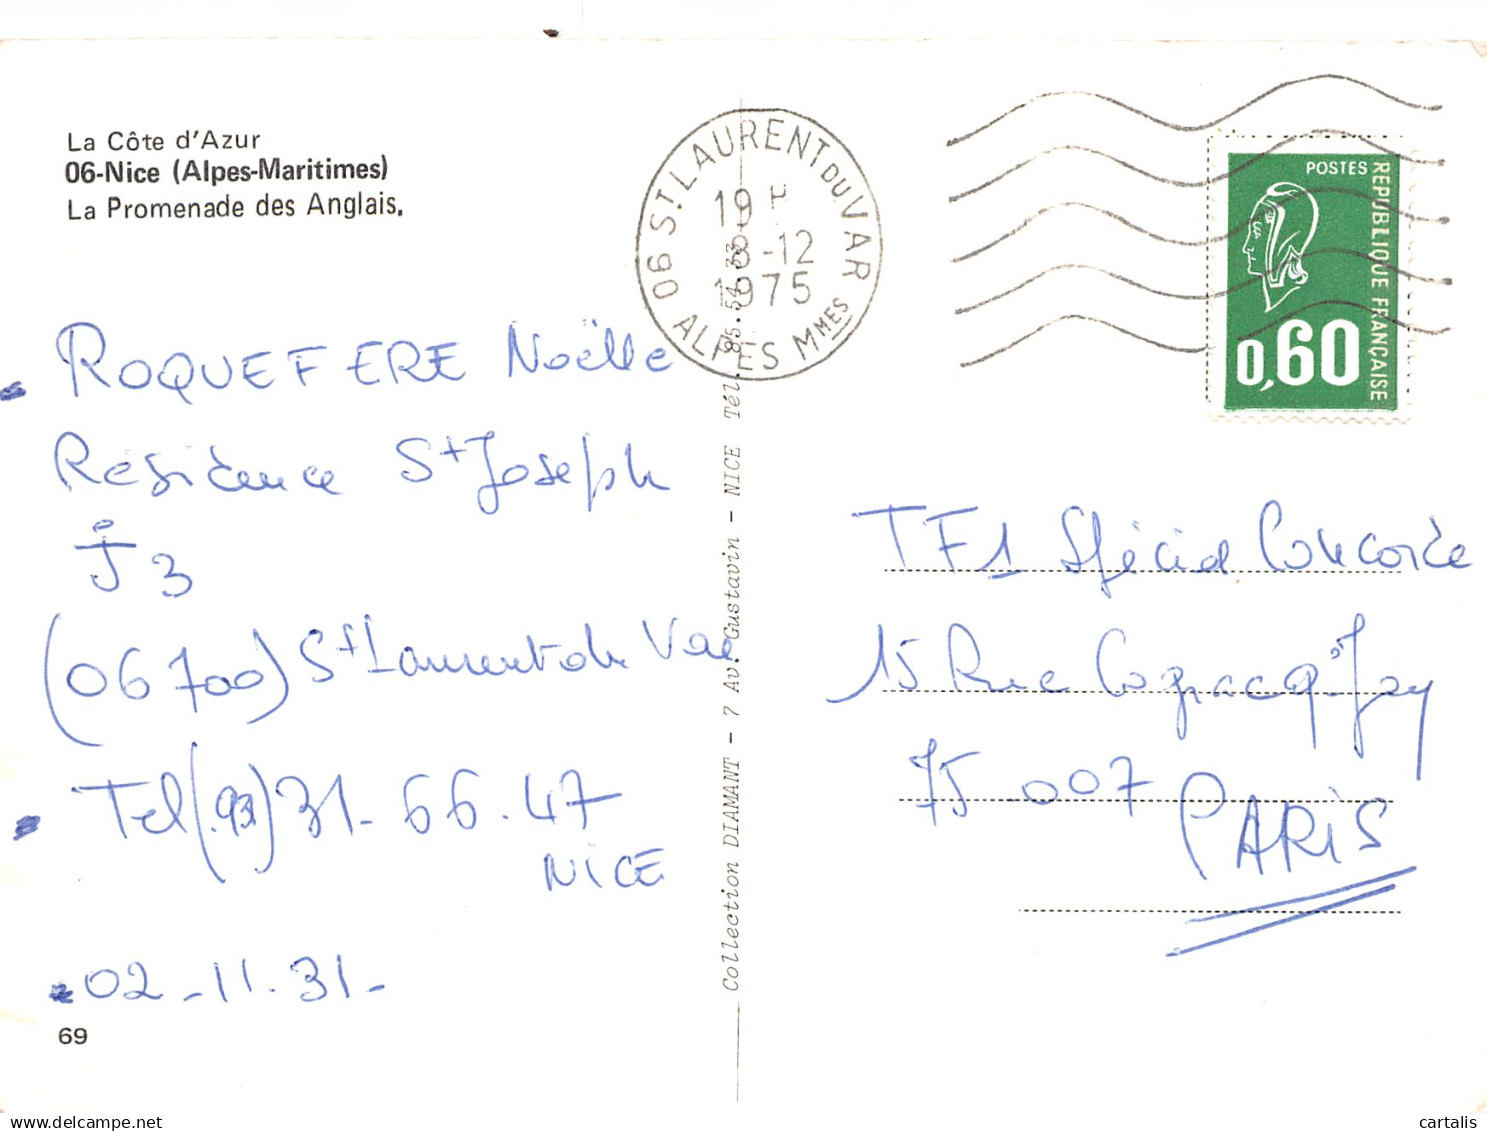 La Côte d'Azur
06-Nice (Alpes-Maritimes)
La Promenade des Anglais.
ROQUEFERE Noëlle
Résidence St Joseph
J3
(06700) St Laurent du Var
Tel (93) 31-66.47
NICE
02-11.31-
69
Collection DIAMANT - 7 Av. Gustavin - NICE Tél. 85.54.33
06 ST LAURENT DU VAR
19 H
8-12
1975
ALPES MMES
POSTES
REPUBLIQUE FRANÇAISE
0,60
TF1 Spécial Concorde
15 Rue Cognacq-Jay
75 007
PARIS
delcampe.net
cartalis